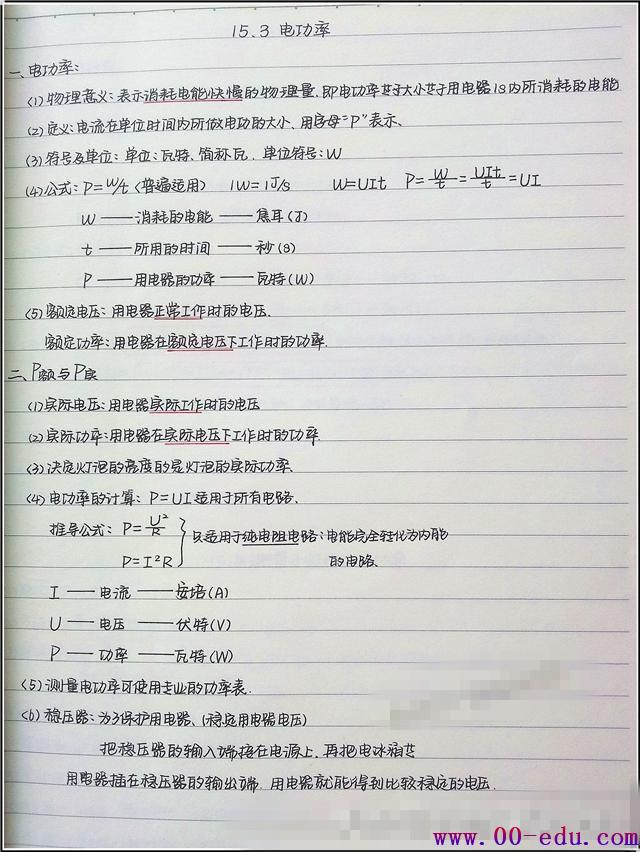 15.3 电功率
一、电功率:
(1)物理意义:表示消耗电能快慢的物理量,即电功率大小等于用电器1s内所消耗的电能
(2)定义:电流在单位时间内所做电功的大小、用字母"P"表示、
(3)符号及单位:单位:瓦特、简称瓦、单位符号:W
(4)公式:P=W/t (普遍适用) 1W=1J/s W=UIt P=W/t=UIt/t=UI
W —— 消耗的电能 —— 焦耳(J)
t —— 所用的时间 —— 秒(s)
P —— 用电器的功率 —— 瓦特(W)
(5)额定电压:用电器正常工作时的电压.
额定功率:用电器在额定电压下工作时的功率.
二、P额与P实
(1)实际电压:用电器实际工作时的电压
(2)实际功率:用电器在实际电压下工作时的功率.
(3)决定灯泡的亮度的是灯泡的实际功率、
(4)电功率的计算:P=UI适用于所有电路、
推导公式:P=U²/R } 只适用于纯电阻电路:电能完全转化为内能
P=I²R 的电路、
I —— 电流 —— 安培(A)
U —— 电压 —— 伏特(V)
P —— 功率 —— 瓦特(W)
(5)测量电功率可使用专业的功率表.
(6)稳压器:为了保护用电器、(稳定用电器电压)
把稳压器的输入端接在电源上,再把电冰箱等
用电器插在稳压器的输出端,用电器就能得到比较稳定的电压.
www.00-edu.com